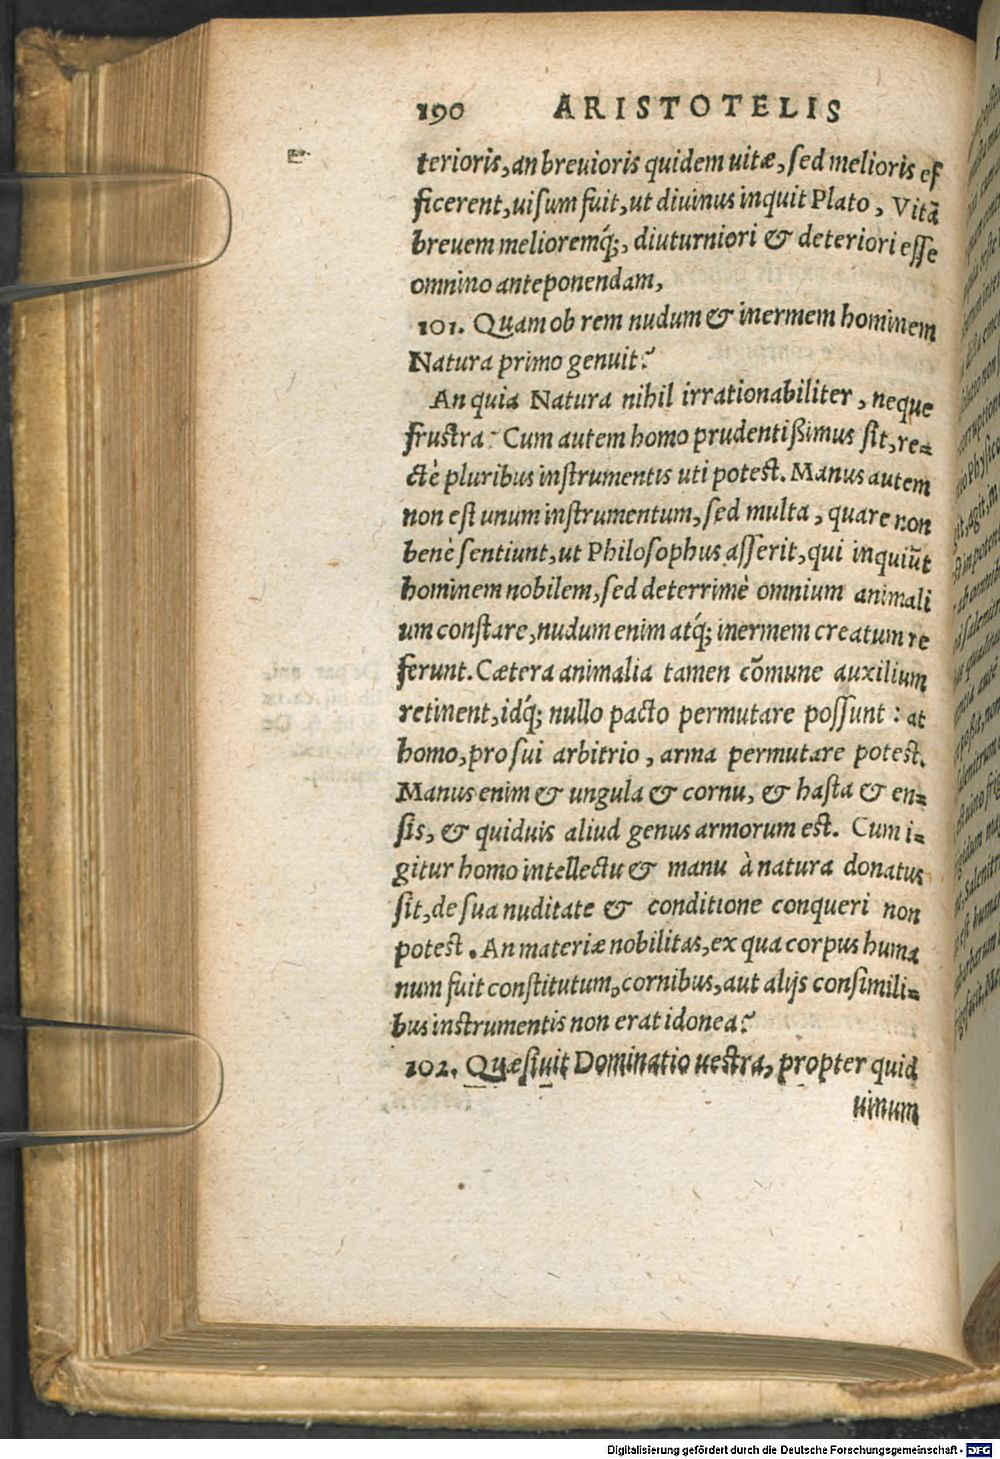 190 ARISTOTELIS
terioris, an breuioris quidem uitæ, sed melioris ef
ficerent, uisum fuit, ut diuinus inquit Plato, Vitã
breuem melioremq́;, diuturniori & deteriori esse
omnino anteponendam,
101. Quam ob rem nudum & inermem hominem
Natura primo genuit?
An quia Natura nihil irrationabiliter, neque
frustra? Cum autem homo prudentißimus sit, re=
ctè pluribus instrumentis uti potest. Manus autem
non est unum instrumentum, sed multa, quare non
benè sentiunt, ut Philosophus asserit, qui inquiũt
hominem nobilem, sed deterrimè omnium animali
um constare, nudum enim atq́; inermem creatum re
ferunt. Cætera animalia tamen cõmune auxilium
retinent, idq́; nullo pacto permutare possunt : at
homo, pro sui arbitrio, arma permutare potest.
Manus enim & ungula & cornu, & hasta & en=
sis, & quiduis aliud genus armorum est. Cum i=
gitur homo intellectu & manu à natura donatus
sit, de sua nuditate & conditione conqueri non
potest. An materiæ nobilitas, ex qua corpus huma
num fuit constitutum, cornibus, aut alijs consimili=
bus instrumentis non erat idonea?
102. Quæsiuit Dominatio uestra, propter quid
uinum
Digitalisierung gefördert durch die Deutsche Forschungsgemeinschaft - DFG